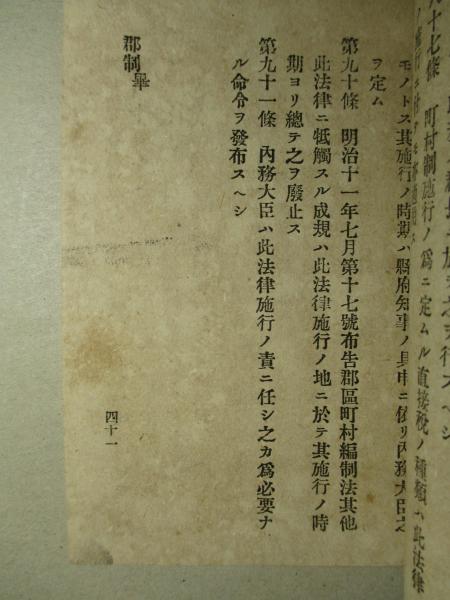 町村制施行ノ爲ニ定ムル直接稅ノ種類ハ此法律
モノトス其施行ノ時期ハ縣府知事ノ具申ニ依リ內務大臣之
ヲ定ム
第九十條　明治十一年七月第十七號布告郡區町村編制法其他
此法律ニ牴觸スル成規ハ此法律施行ノ地ニ於テ其施行ノ時
期ヨリ總テ之ヲ廢止ス
第九十一條　內務大臣ハ此法律施行ノ責ニ任シ之カ爲必要ナ
ル命令ヲ發布スヘシ
郡制畢
四十一